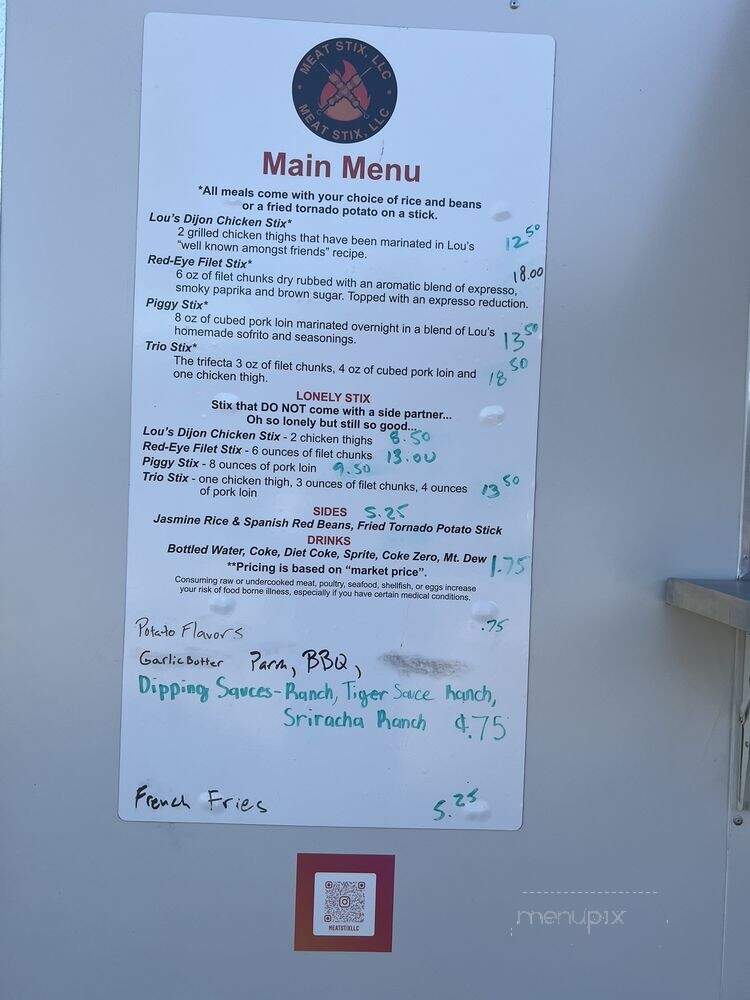 MEAT STIX, LLC
MEAT STIX, LLC
Main Menu
*All meals come with your choice of rice and beans
or a fried tornado potato on a stick.
Lou's Dijon Chicken Stix*
2 grilled chicken thighs that have been marinated in Lou's 12 50
"well known amongst friends" recipe.
Red-Eye Filet Stix* 18.00
6 oz of filet chunks dry rubbed with an aromatic blend of expresso,
smoky paprika and brown sugar. Topped with an expresso reduction.
Piggy Stix*
8 oz of cubed pork loin marinated overnight in a blend of Lou's
homemade sofrito and seasonings. 13 50
Trio Stix*
The trifecta 3 oz of filet chunks, 4 oz of cubed pork loin and 18 50
one chicken thigh.
LONELY STIX
Stix that DO NOT come with a side partner...
Oh so lonely but still so good...
Lou's Dijon Chicken Stix - 2 chicken thighs 8.50
Red-Eye Filet Stix - 6 ounces of filet chunks 13.00
Piggy Stix - 8 ounces of pork loin 9.50
Trio Stix - one chicken thigh, 3 ounces of filet chunks, 4 ounces 13 50
of pork loin
SIDES 5.25
Jasmine Rice & Spanish Red Beans, Fried Tornado Potato Stick
DRINKS
Bottled Water, Coke, Diet Coke, Sprite, Coke Zero, Mt. Dew 1.75
**Pricing is based on "market price".
Consuming raw or undercooked meat, poultry, seafood, shellfish, or eggs increase
your risk of food borne illness, especially if you have certain medical conditions.
Potato Flavors .75
Garlic Butter Parm, BBQ,
Dipping Sauces - Ranch, Tiger Sauce Ranch,
Sriracha Ranch ¢.75
French Fries 5.25
MEATSTIXLLC
menupix